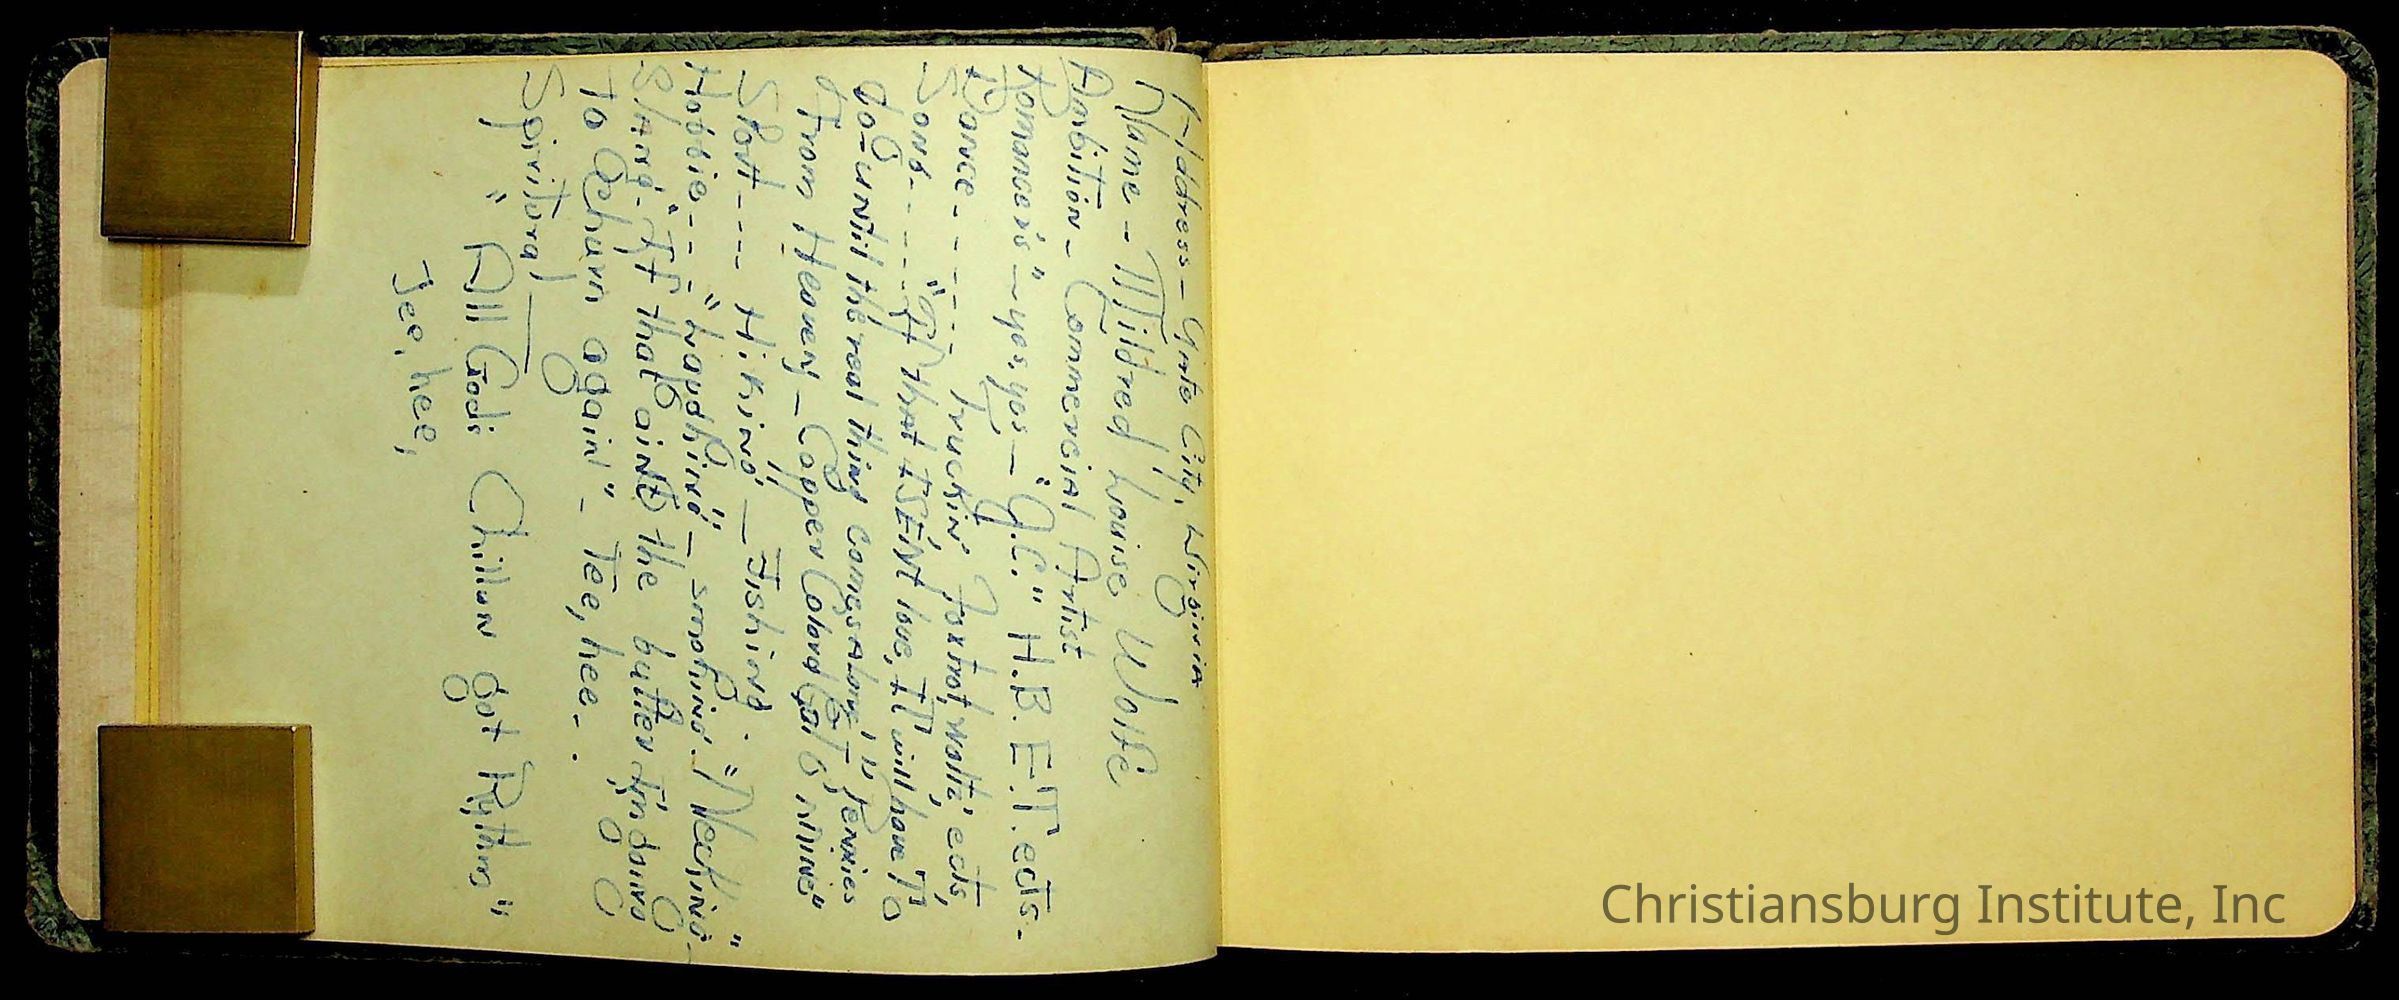 Address - Gate City, Virginia
Name -- Mildred Louise Wolfe
Ambition - Commercial Artist
Romance is" - yes, yes - "G.C." H.B. E.T. ects.
Dance - - - - - Truckin', Foxtrot, waltz' ects,
Song - - - - - "If that ISENT love, It will have To
do - untill the real thing comes along", "Pennies
From Heaven - Copper Colored Gal O' mine"
Sport - - - - Hiking, - Fishing.
Hobbie - - - - "Laughing" - smoking - "Necking" -
Slang - "If that aint the butter dingding
To Churn again" - Tee, hee - .
Spiritural
" All Gods Chillun got Rythm"
Tee, hee,
Christiansburg Institute, Inc